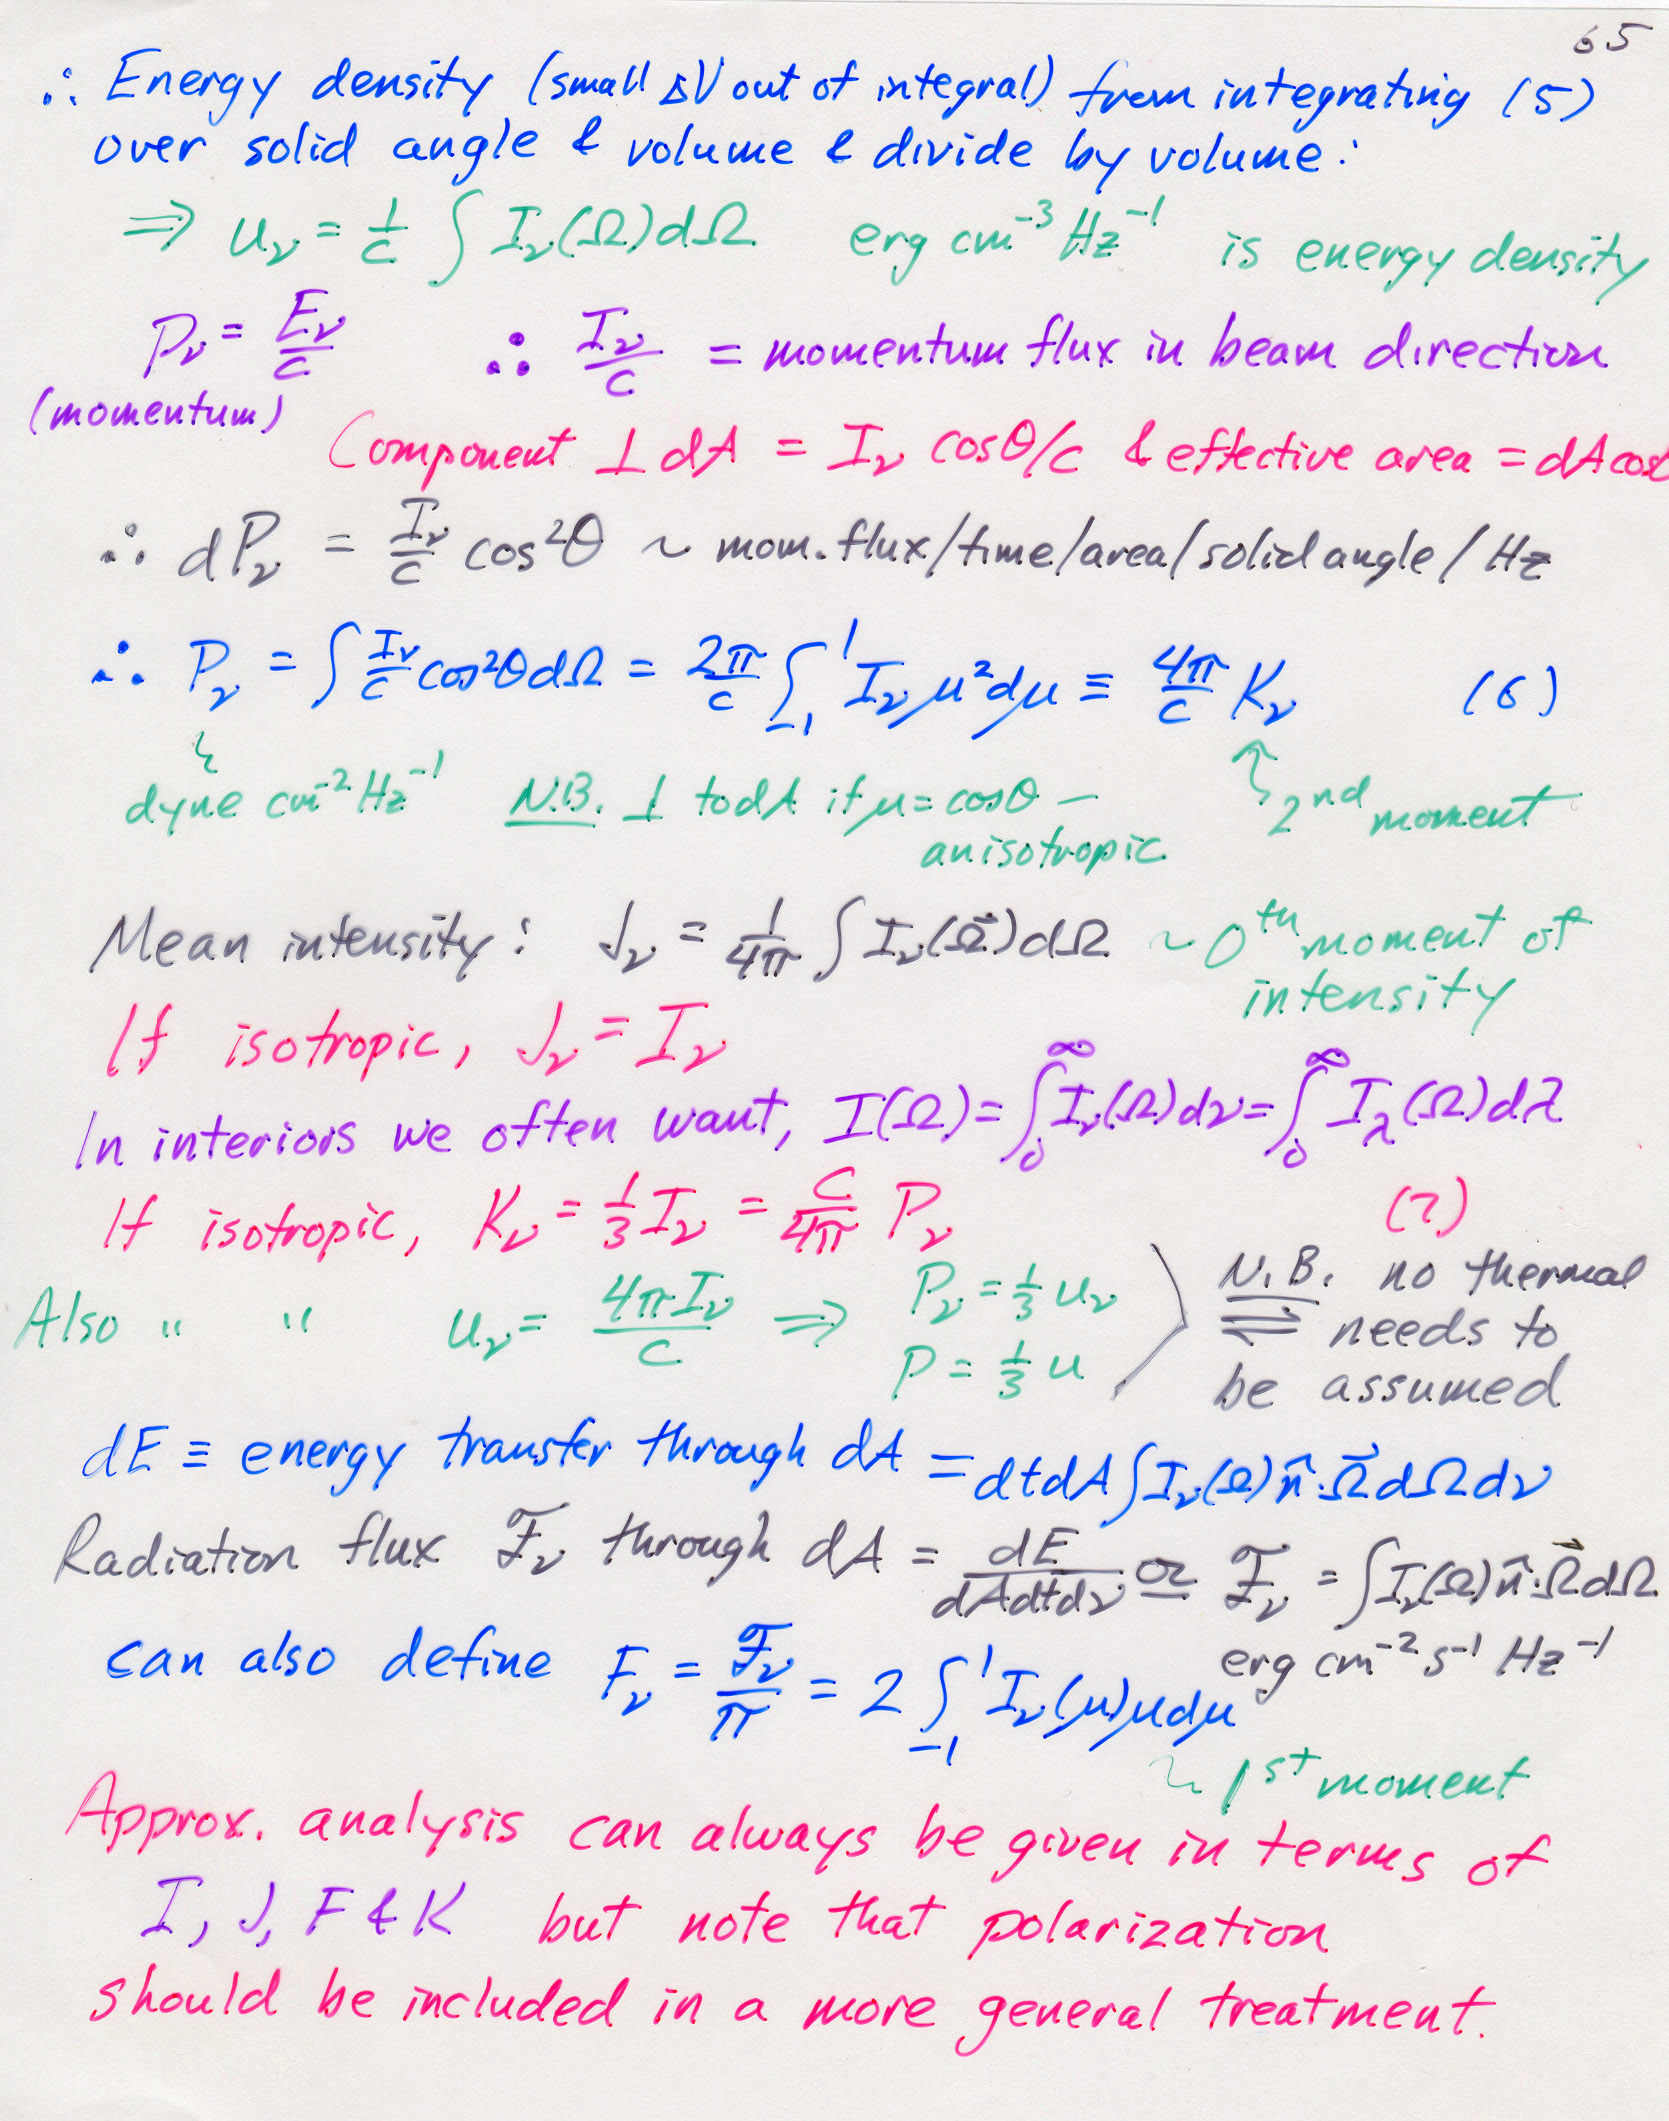 65
∴ Energy density (small ΔV out of integral) from integrating (5)
over solid angle & volume & divide by volume:
⇒ u_ν = 1/c ∫ I_ν(Ω)dΩ erg cm⁻³ Hz⁻¹ is energy density
P_ν = E_ν/c ∴ I_ν/c = momentum flux in beam direction
(momentum)
Component ⊥ dA = I_ν cosθ/c & effective area = dA cosθ
∴ dP_ν = I_ν/c cos²θ ~ mom. flux/time/area/solid angle/Hz
∴ P_ν = ∫ I_ν/c cos²θ dΩ = 2π/c ∫₋₁¹ I_ν μ²dμ ≡ 4π/c K_ν (6)
dyne cm⁻² Hz⁻¹ N.B. ⊥ to dA if μ = cosθ — 2nd moment
anisotropic
Mean intensity: J_ν = 1/4π ∫ I_ν(Ω⃗)dΩ ~ 0th moment of
intensity
If isotropic, J_ν = I_ν
In interiors we often want, I(Ω) = ∫₀^∞ I_ν(Ω)dν = ∫₀^∞ I_λ(Ω)dλ
If isotropic, K_ν = 1/3 I_ν = c/4π P_ν (7)
Also " " u_ν = 4πI_ν/c ⇒ P_ν = 1/3 u_ν N.B. no thermal
P = 1/3 u ⇌ needs to
be assumed
dE ≡ energy transfer through dA = dtdA ∫ I_ν(Ω) n̂·Ω⃗ dΩdν
Radiation flux ℱ_ν through dA = dE/dAdtdν or ℱ_ν = ∫ I_ν(Ω) n̂·Ω⃗ dΩ
erg cm⁻² s⁻¹ Hz⁻¹
can also define F_ν = ℱ_ν/π = 2 ∫₋₁¹ I_ν(μ)μdμ
~ 1st moment
Approx. analysis can always be given in terms of
I, J, F & K but note that polarization
should be included in a more general treatment.